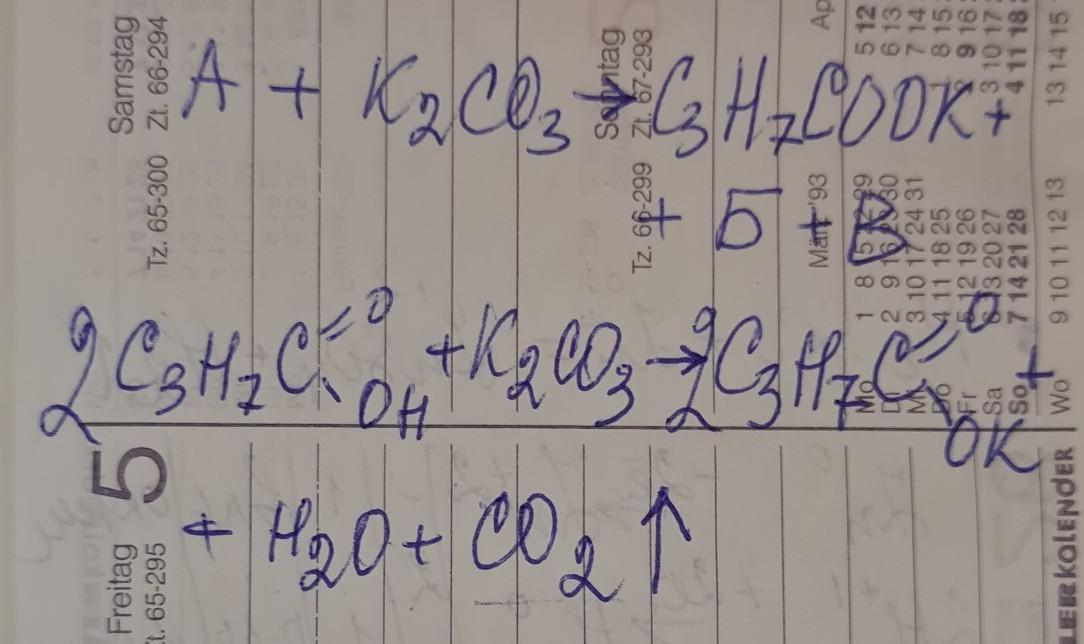 A + K₂CO₃ → C₃H₇COOK +
+ Б + В
2C₃H₇C=O OH + K₂CO₃ → 2C₃H₇C=O OK +
+ H₂O + CO₂ ↑
Samstag
Tz. 65-300 Zt. 66-294
Sonntag
Tz. 66-299 Zt. 67-293
5
Freitag
Zt. 65-295
März '93
Mo 1 8
Di 2 9 16 30
Mi 3 10 17 24 31
Do 4 11 18 25
Fr 5 12 19 26
Sa 6 13 20 27
So 7 14 21 28
Ap
5 12
6 13
7 14
8 15
9 16
3 10 17
4 11 18
Wo 9 10 11 12 13
13 14 15